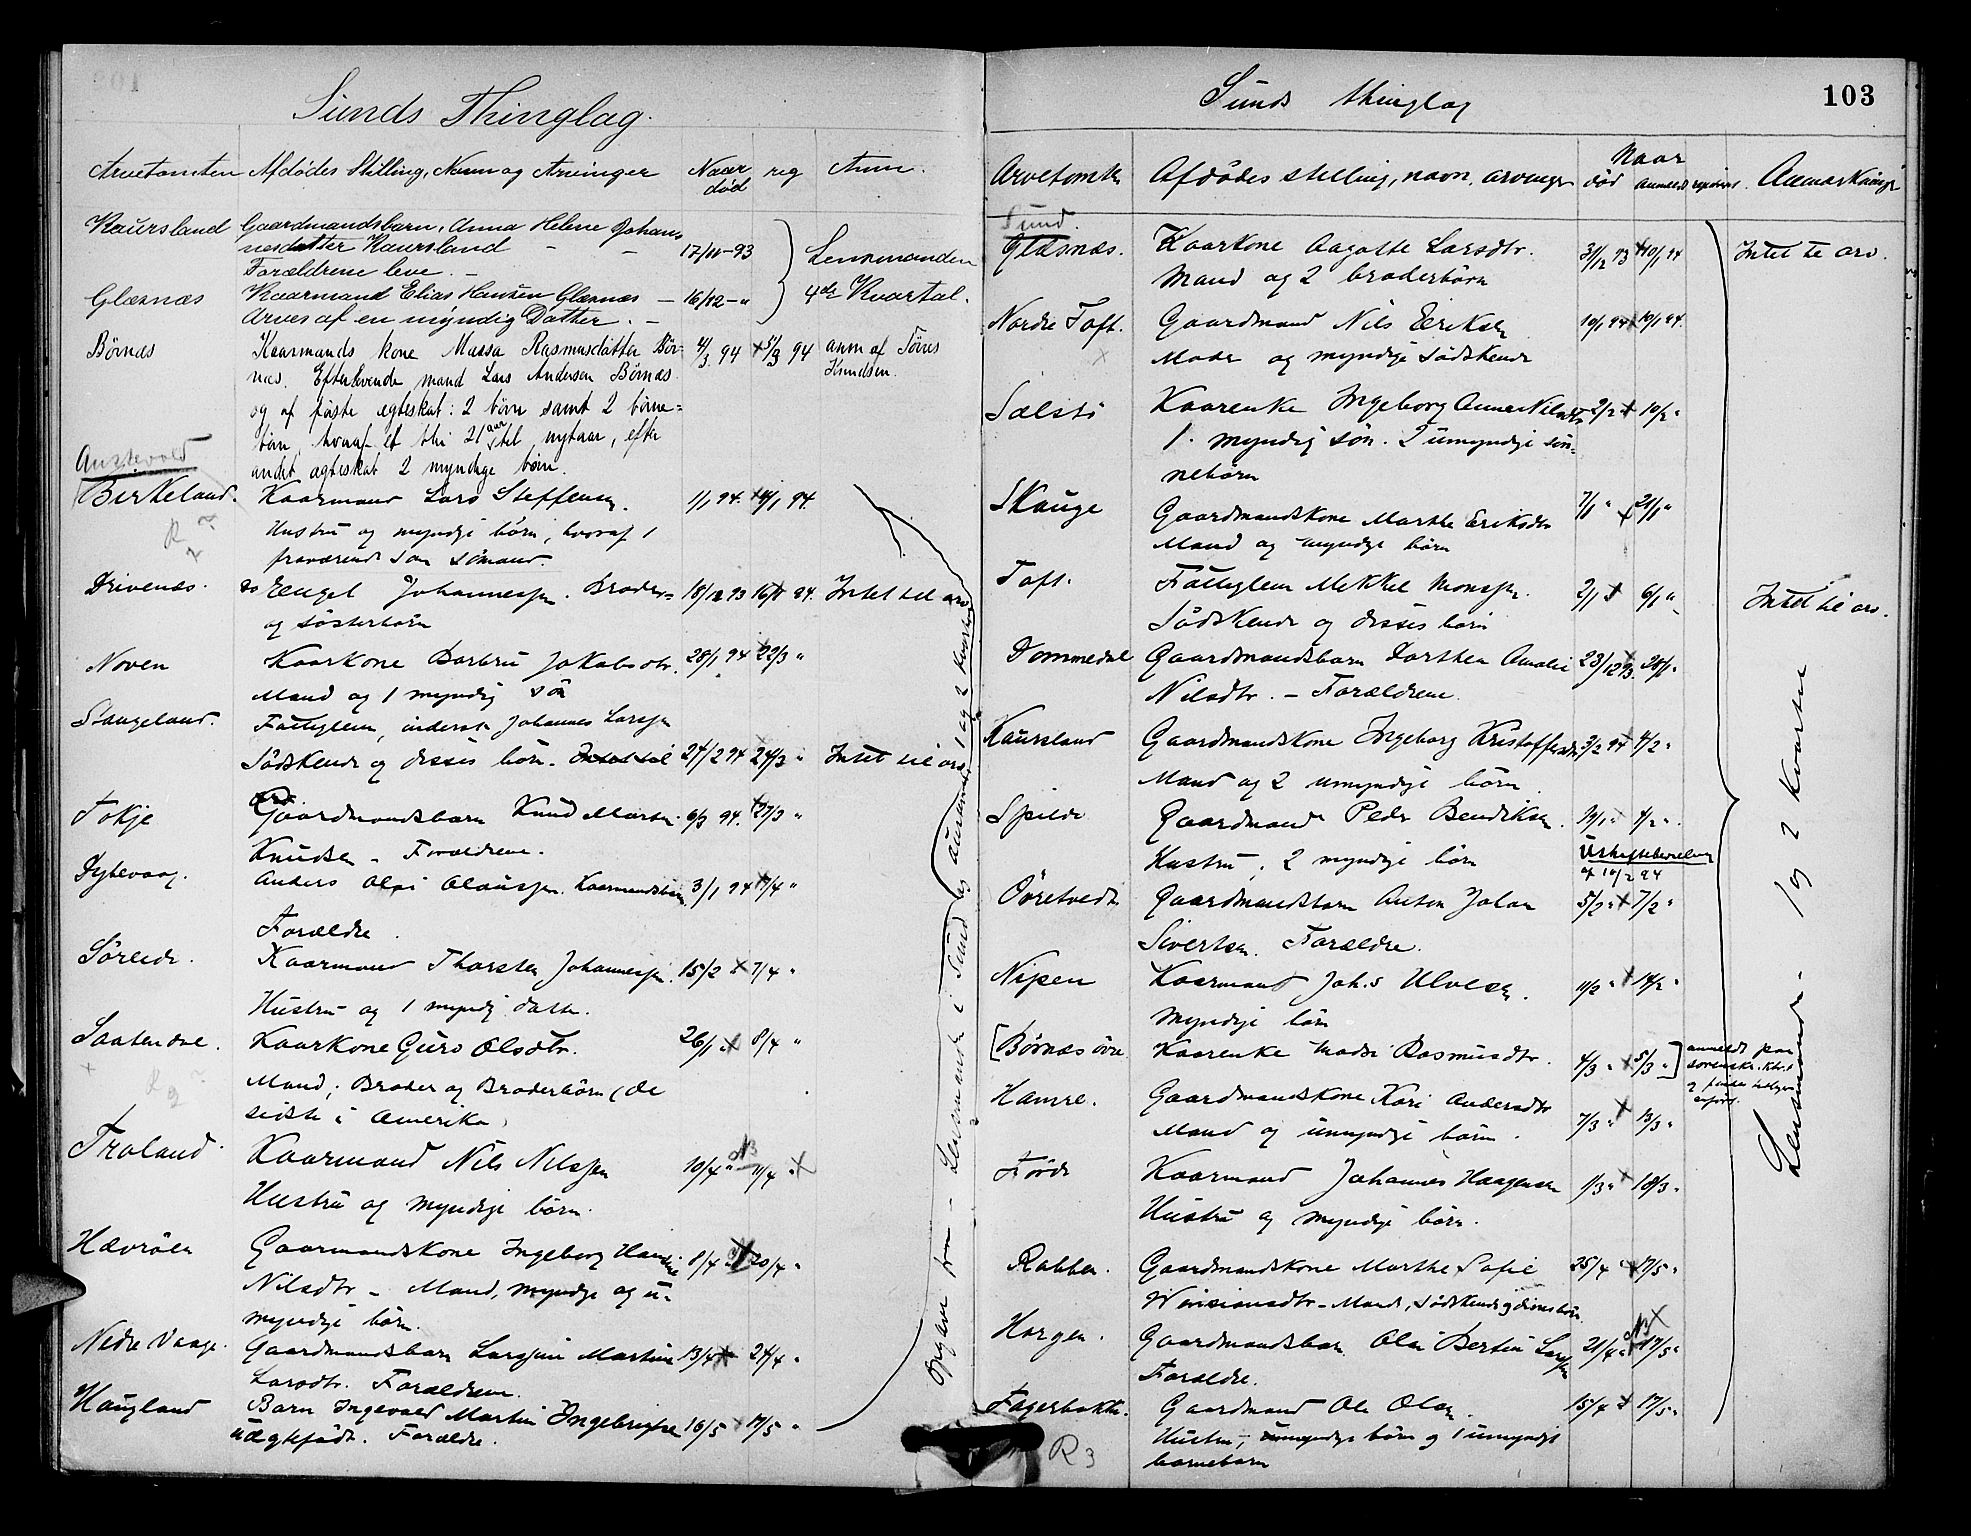 Sunds Thinglag.
Arvetomten Afdødes Stilling, Navn og Arvinger Naar død reg Anm.
Kaursland Gaardmandsbarn, Anna Helene Johan-
nesdatter Kaursland - - 17/11-93 Lensmanden
Forældrene leve. -
Glæsnæs Kaarmand Elias Hansen Glæsnæs - 16/12-" 4de Kvartal.
Arves af en myndig Datter. -
Børnæs Kaarmands kone Massa Rasmusdatter Bør- 4/3 94 5/3 94 anm af Tørres
næs. Efterlevende mand Lars Andersen Børnæs Knudsen.
og af første egteskab: 2 børn samt 2 børne=
børn, hvoraf et blir 21 aar til nytaar, efter
andet ægteskab 2 myndige børn.
Austevold
Birkeland. Kaarmand Lars Steffensen. 1/1 94. 4/1 94.
Hustru og myndige børn, hvoraf 1
fraværende søn sömand.
R 2
Drivenæs. Engel Johannessen. Broder= 18/12 93 94. Intet til arv
og søsterbørn
Noven Kaarkone Barbru Jakobsdtr. 28/1 94 22/3 "
Mand og 1 myndig søn
Stangeland. Fattiglem, inderst Johannes Larssen
Södskende og disses børn. 24/2 94 24/3 " Intet til arv
Tokje Gaardmandsbarn Knud Marten 6/3 94. 27/3 "
Knudsen - Forældrene.
Dybevaag. Anders Olai Olaussen. Kaarmandsbarn 3/1 94 /4 "
Forældre.
Søreide. Kaarmand Thorsten Johannessen. 15/2 " 7/4 "
Hustru og 1 myndig datter.
Kaarkone Guro Olsdtr. 26/1 " 8/4 "
Mand, Broder og Broderbörn (de
sidste i Amerika)
R 2
Troland. Kaarmand Nils Nilssen 10/4 " 11/4 "
Hustru og myndige börn.
Hævröen Gaarmandskone Ingeborg 8/4 20/4 "
Nilsdtr - Mand, myndige og u-
myndige børn.
Nedre Vaage. Gaardmandsbarn Larssine Martine 13/4 24/4 "
Larsdtr. Forældrene.
Haugland Barn Ingevald Martin Ingebrigtsen 16/5 17/5 "
uægtefødt. Forældre.
Opgave fra - Lensmanden i Sund og Austevold 1 og 2 kvartal
Sunds thinglag
103
Arvetomten Afdødes stilling, navn, arvinger Naar død anmeldt registreret. Anmærkninger
Sund.
Glæsnæs. Kaarkone Aagotte Larsdtr. 31/12 93 10/1 94 Intet te arv.
Mand og 2 broderbørn
Nordre Toft. Gaardmand Nils Eriksen 10/1 94 10/1 94.
Moder og myndige södskende
Sælstö Kaarenke Ingeborg Anna Nilsdtr. 2/2 " 10/2 "
1. myndig søn. 2 umyndige søn-
nebörn
Skauge Gaardmandskone Marthe Eriksdtr 7/1 " 21/1 "
Mand og myndige børn
Toft. Fattiglem Mikkel Monssen. 2/1 6/1 " Intet til arv.
Södskende og disses børn
Dommedal Gaardmandsbarn Dorthea Amalie 23/12 93. 28/1 "
Nilsdtr. - Forældrene.
Kaursland Gaardmandskone Ingeborg Kristoffersdtr. 3/2 94 4/2 "
Mand og 2 umyndige børn.
Spilde Gaardmand Peder Bendiksen. /1 " 4/2 "
Hustru, 2 myndige börn Uskiftebevilling
af 10/2 94
Gaardmandsbarn Anton Johan 5/2 " 7/2 "
Sivertsen. Forældre.
Nipen Kaarmand Johs Ulvesen. 11/2 " 14/2 "
Myndige børn
[Børnæs övre Kaarenke Madsi Rasmusdtr. 4/3 " 5/3 "] anmeldt paa
sorenskr. Kont.
og foran
anført.
Hamre. Gaardmandskone Kari Andersdtr 7/3 " 13/3 "
Mand og umyndige børn.
Førde Kaarmand Johannes Haagensen 1/3 " 18/3 "
Hustru og myndige børn.
Rabben. Gaardmandskone Marthe Sofie 25/4 " 17/5 "
- Mand, södskende og disses børn
Horgen. Gaardmandsbarn Olai Bertin Larssen 21/4 17/5 "
Forældre.
Fagerbakke. Gaardmand Ole Olsen. 15/4 17/5 "
Hustru, myndige børn og 1 umyndigt
barnebarn
R 3
Lensmanden. 1 og 2 kvartal